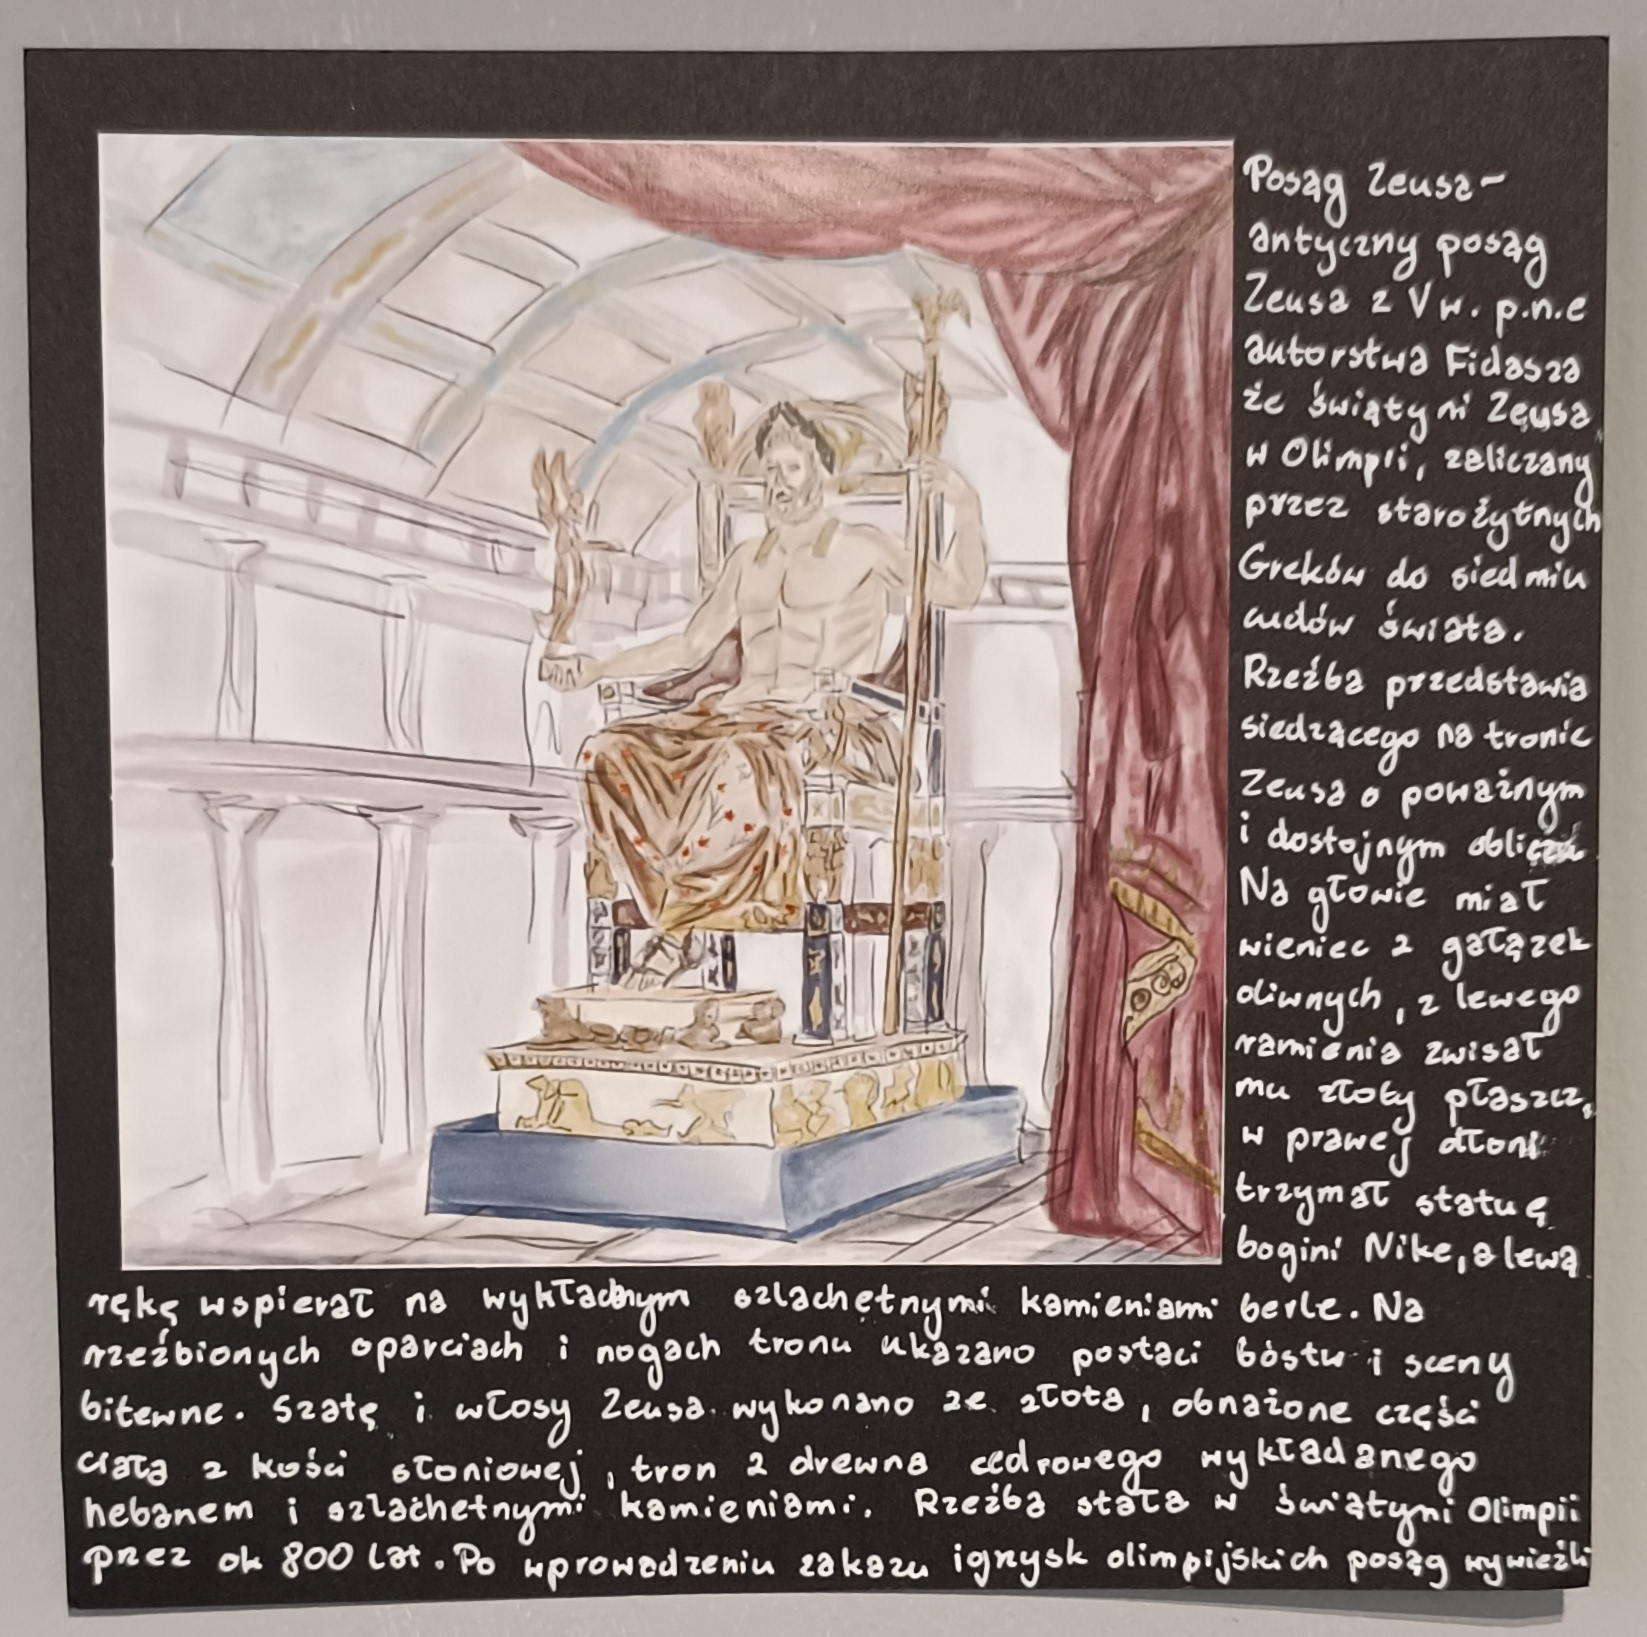 Posąg Zeusa-
antyczny posąg
Zeusa z V w. p.n.e
autorstwa Fidasza
że świątyni Zeusa
w Olimpii, zaliczany
przez starożytnych
Greków do siedmiu
cudów świata.
Rzeźba przedstawia
siedzącego na tronie
Zeusa o poważnym
i dostojnym obliczu
Na głowie miał
wieniec z gałązek
oliwnych, z lewego
ramienia zwisał
mu złoty płaszcz,
w prawej dłoni
trzymał statuę
bogini Nike, a lewą
rękę wspierał na wykładanym szlachętnymi kamieniami berle. Na
rzeźbionych oparciach i nogach tronu ukazano postaci bóstw i sceny
bitewne. Szatę i włosy Zeusa wykonano ze złota, obnażone części
ciała z kości słoniowej, tron z drewna cedrowego wykładanego
hebanem i szlachetnymi kamieniami. Rzeźba stała w świątyni Olimpii
przez ok 800 lat. Po wprowadzeniu zakazu igrzysk olimpijskich posąg wywieźli